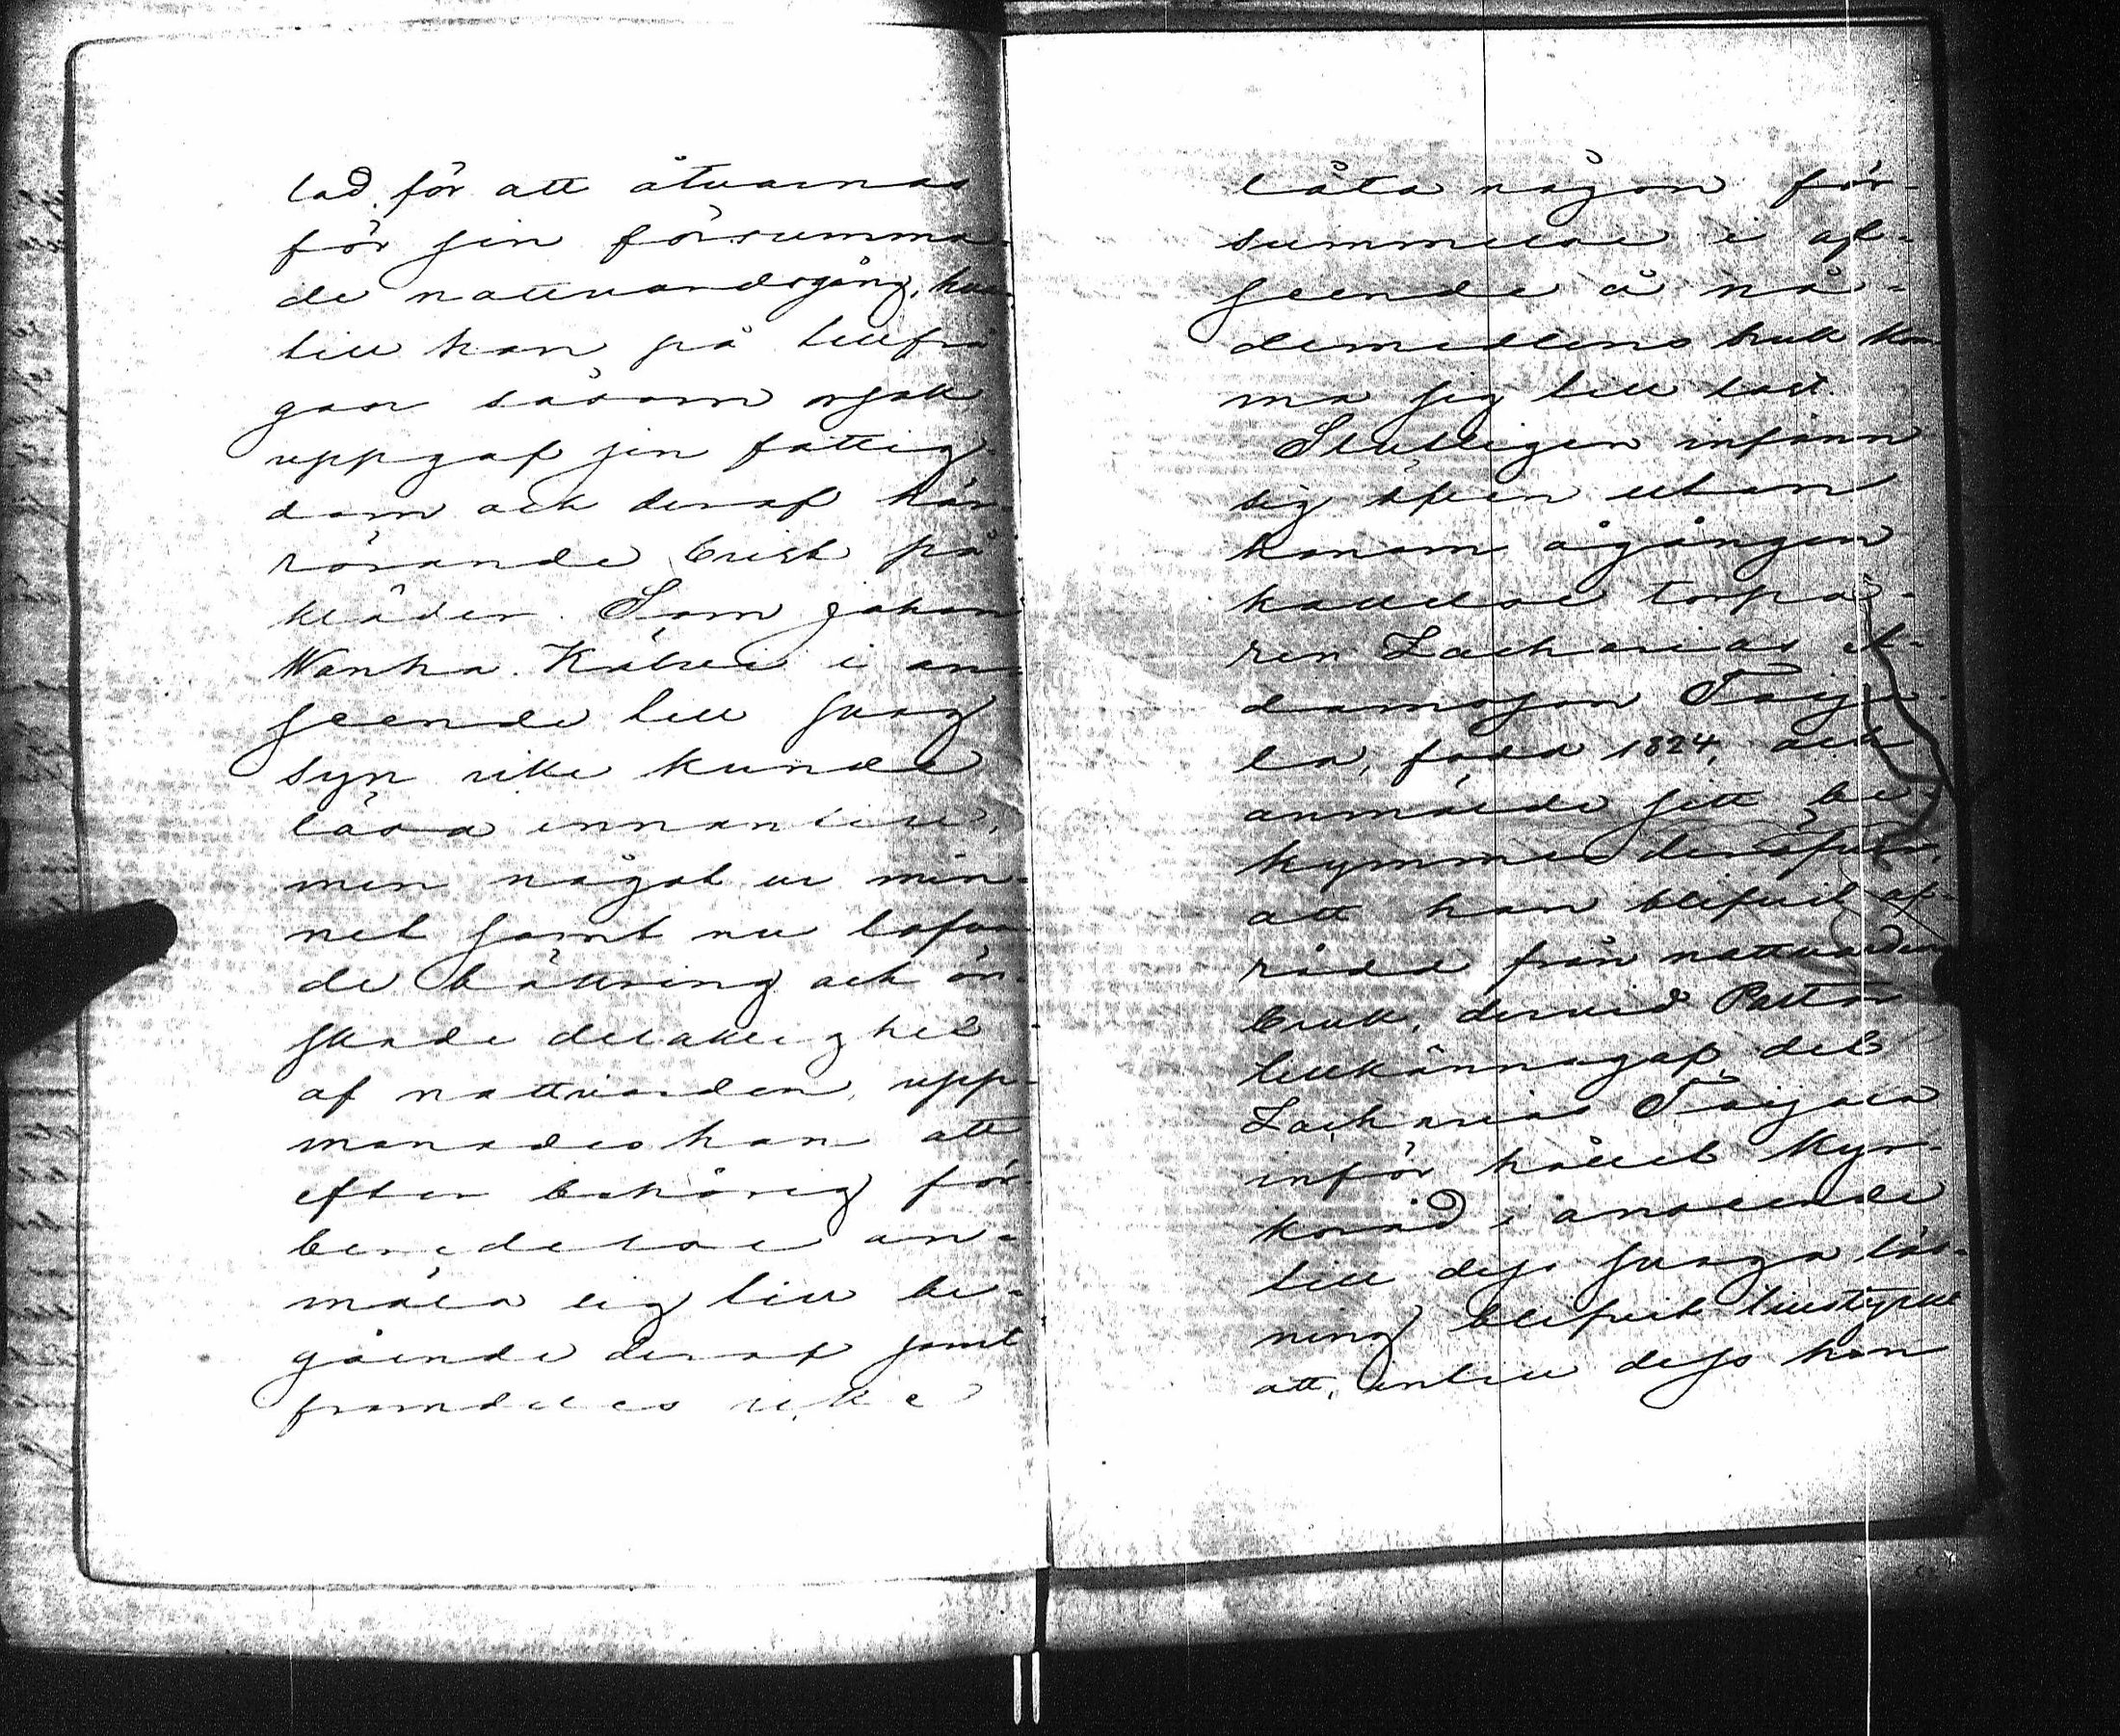 lad för att åtvarnas
för sin försumma-
de nattvardsgång, hvar-
till han på tillfrå-
gan såsom orsak
uppgaf sin fattig-
dom och deraf här-
rörande brist på
kläder. Som Johan
Wanha-Kätvä i an-
seende till svag
syn icke kunde
läsa innantill,
men något ur min-
net samt nu lofva-
de bättring och ön-
skade delaktighet
af nattvarden, upp-
manades han att
efter behörig för-
beredelse an-
mäla sig till be-
gående deraf samt
framdeles icke
låta någon för-
summelse i af-
seende å nå-
demedlens bruk kom-
ma sig till last.
Slutligen infann
sig äfven utan
honom ågången
kallelse torpa-
ren Zacharias A-
damsson Taipa-
la, född 1824, och
anmälde sitt be-
kymmer deröfver,
att han blifvit af-
rådd från nattvardens
bruk, dervid Pastor
tillkännagaf det
Zacharias Taipala
inför hållet kyr-
koråd i anseende
till dess svaga läs-
ning blifvit tillstyrkt
att, intill dess han